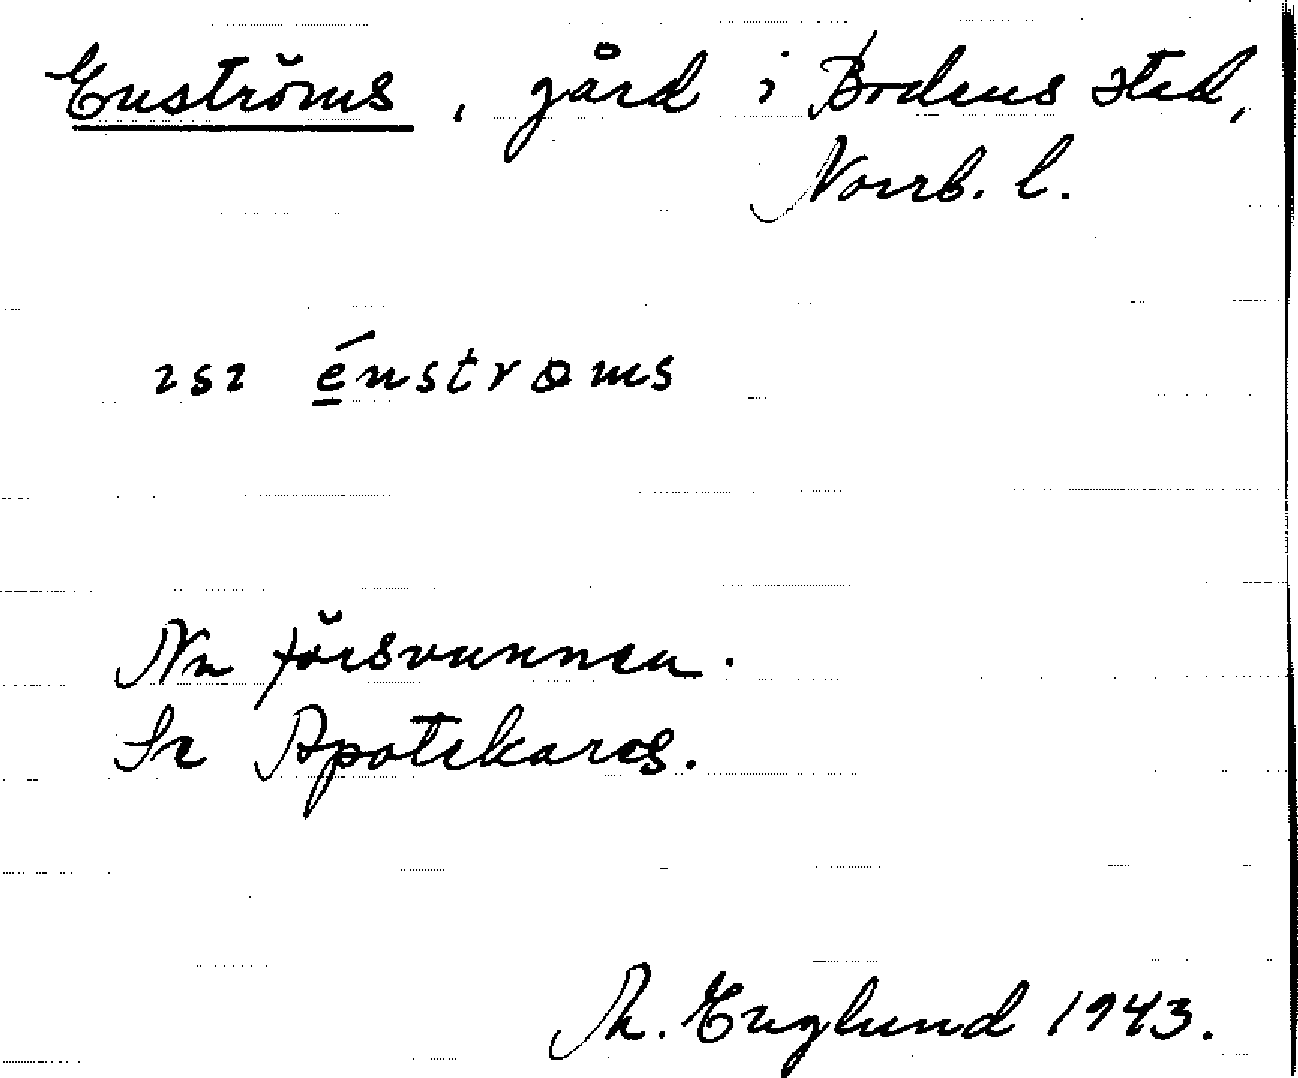 Enströms, gård i Bodens stad,
Norrb. l.
ısı énstrωms
Nu försvunnen.
Se Apotekares.
M. Englund 1943.